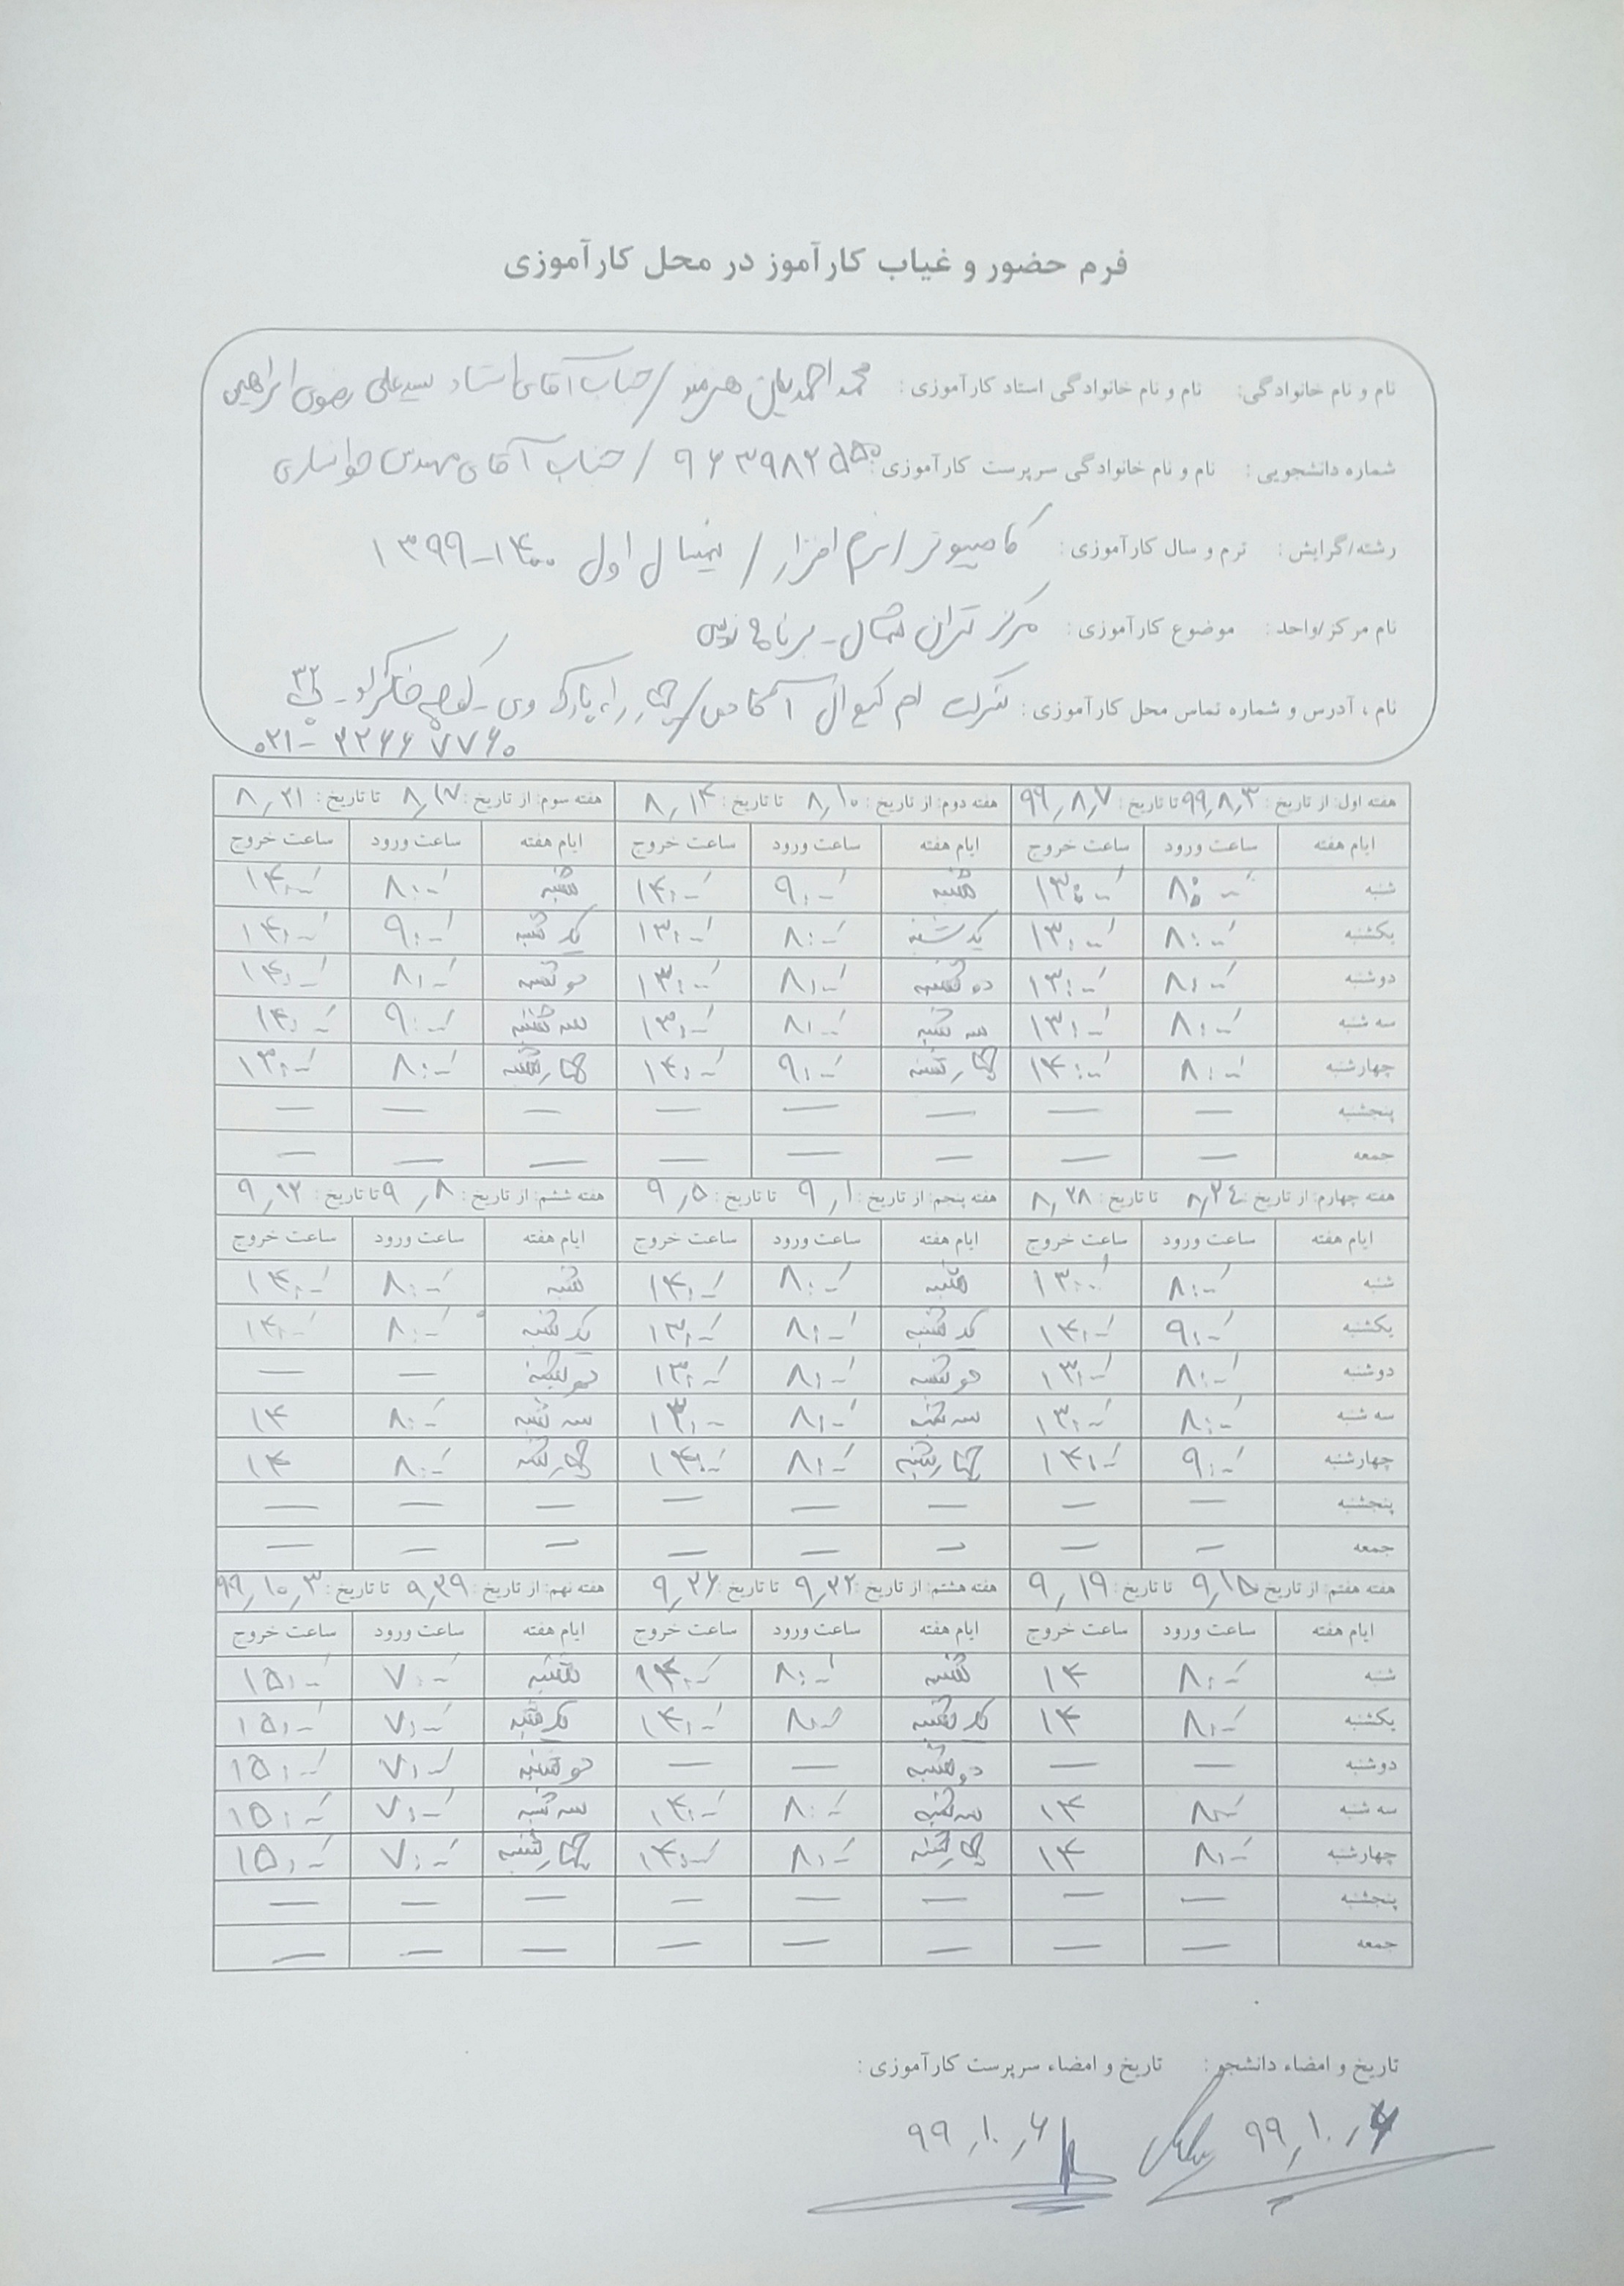 فرم حضور و غیاب کارآموز در محل کارآموزی
نام و نام خانوادگی: نام و نام خانوادگی استاد کارآموزی: محمد احمدیان هنرمند / جناب آقای استاد سید علی رضوی ابراهیمی
شماره دانشجویی: نام و نام خانوادگی سرپرست کارآموزی: / جناب آقای مهدی خوانساری
رشته/گرایش: ترم و سال کارآموزی: کامپیوتر / نرم افزار / نیمسال اول ۱۴۰۰-۱۳۹۹
نام مرکز/واحد: موضوع کارآموزی: مرکز تهران شمال - برنامه نویسی
نام، آدرس و شماره تماس محل کارآموزی: شرکت / چهار راه پارک وی - کوچه - پ ۳۲
هفته اول: از تاریخ: ۹۹٫۸٫۳ تا تاریخ: ۹۹٫۸٫۷ هفته دوم: از تاریخ: ۸٫۱۰ تا تاریخ: ۸٫۱۴ هفته سوم: از تاریخ: ۸٫۱۷ تا تاریخ: ۸٫۲۱
ایام هفته ساعت ورود ساعت خروج ایام هفته ساعت ورود ساعت خروج ایام هفته ساعت ورود ساعت خروج
شنبه ۸:۰۰ ۱۳:۰۰ شنبه ۹:۰۰ ۱۴:۰۰ شنبه ۸:۰۰ ۱۴:۰۰
یکشنبه ۸:۰۰ ۱۳:۰۰ یک شنبه ۸:۰۰ ۱۳:۰۰ یک شنبه ۹:۰۰ ۱۴:۰۰
دوشنبه ۸:۰۰ ۱۳:۰۰ دو شنبه ۸:۰۰ ۱۳:۰۰ دو شنبه ۸:۰۰ ۱۴:۰۰
سه شنبه ۸:۰۰ ۱۳:۰۰ سه شنبه ۸:۰۰ ۱۳:۰۰ سه شنبه ۹:۰۰ ۱۴:۰۰
چهارشنبه ۸:۰۰ ۱۴:۰۰ چهارشنبه ۹:۰۰ ۱۴:۰۰ چهارشنبه ۸:۰۰ ۱۳:۰۰
پنجشنبه — — — — — — — —
جمعه — — — — — — — —
هفته چهارم: از تاریخ: ۸٫۲۴ تا تاریخ: ۸٫۲۸ هفته پنجم: از تاریخ: ۹٫۱ تا تاریخ: ۹٫۵ هفته ششم: از تاریخ: ۹٫۸ تا تاریخ: ۹٫۱۲
ایام هفته ساعت ورود ساعت خروج ایام هفته ساعت ورود ساعت خروج ایام هفته ساعت ورود ساعت خروج
شنبه ۸:۰۰ ۱۳:۰۰ شنبه ۸:۰۰ ۱۴:۰۰ شنبه ۸:۰۰ ۱۴:۰۰
یکشنبه ۹:۰۰ ۱۴:۰۰ یک شنبه ۸:۰۰ ۱۳:۰۰ یک شنبه ۸:۰۰ ۱۴:۰۰
دوشنبه ۸:۰۰ ۱۳:۰۰ دو شنبه ۸:۰۰ ۱۳:۰۰ دو شنبه — —
سه شنبه ۸:۰۰ ۱۳:۰۰ سه شنبه ۸:۰۰ ۱۳:۰۰ سه شنبه ۸:۰۰ ۱۴
چهارشنبه ۹:۰۰ ۱۴:۰۰ چهارشنبه ۸:۰۰ ۱۴:۰۰ چهارشنبه ۸:۰۰ ۱۴
پنجشنبه — — — — — — — —
جمعه — — — — — — — —
هفته هفتم: از تاریخ: ۹٫۱۵ تا تاریخ: ۹٫۱۹ هفته هشتم: از تاریخ: ۹٫۲۲ تا تاریخ: ۹٫۲۶ هفته نهم: از تاریخ: ۹٫۲۹ تا تاریخ: ۹۹٫۱۰٫۳
ایام هفته ساعت ورود ساعت خروج ایام هفته ساعت ورود ساعت خروج ایام هفته ساعت ورود ساعت خروج
شنبه ۸:۰۰ ۱۴ شنبه ۸:۰۰ ۱۴:۰۰ شنبه ۷:۰۰ ۱۵:۰۰
یکشنبه ۸:۰۰ ۱۴ یک شنبه ۸:۰۰ ۱۴:۰۰ یک شنبه ۷:۰۰ ۱۵:۰۰
دوشنبه — — دو شنبه — — دو شنبه ۷:۰۰ ۱۵:۰۰
سه شنبه ۸:۰۰ ۱۴ سه شنبه ۸:۰۰ ۱۴:۰۰ سه شنبه ۷:۰۰ ۱۵:۰۰
چهارشنبه ۸:۰۰ ۱۴ چهارشنبه ۸:۰۰ ۱۴:۰۰ چهارشنبه ۷:۰۰ ۱۵:۰۰
پنجشنبه — — — — — — — —
جمعه — — — — — — — —
تاریخ و امضاء دانشجو: تاریخ و امضاء سرپرست کارآموزی:
۹۹٫۱۰٫۶ ۹۹٫۱۰٫۶